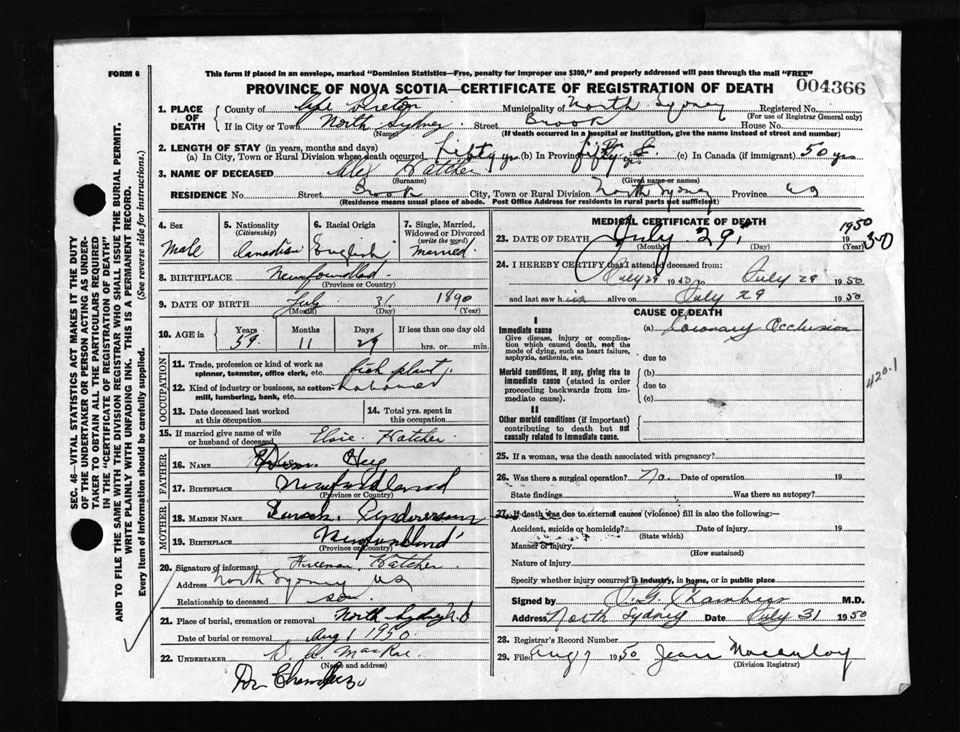 FORM 6
This form if placed in an envelope, marked "Dominion Statistics—Free, penalty for improper use $300," and properly addressed will pass through the mail "FREE"
PROVINCE OF NOVA SCOTIA—CERTIFICATE OF REGISTRATION OF DEATH
004366
1. PLACE OF DEATH
County of Cape Breton Municipality of North Sydney Registered No.
(For use of Registrar General only)
If in City or Town North Sydney Street Brook House No.
(Name) (If death occurred in a hospital or institution, give the name instead of street and number)
2. LENGTH OF STAY (in years, months and days)
(a) In City, Town or Rural Division where death occurred fifty yrs (b) In Province fifty (c) In Canada (if immigrant) 50 yrs
3. NAME OF DECEASED Alex Hatcher
(Surname) (Given name or names)
RESIDENCE No. Street Brook City, Town or Rural Division North Sydney Province
(Residence means usual place of abode. Post Office Address for residents in rural parts not sufficient)
4. Sex
Male
5. Nationality
(Citizenship)
Canadian
6. Racial Origin
English
7. Single, Married, Widowed or Divorced
(write the word)
Married
8. BIRTHPLACE Newfoundland
(Province or Country)
9. DATE OF BIRTH 31 1890
(Month) (Day) (Year)
10. AGE in
Years Months Days If less than one day old
59 11 29 hrs. or min.
OCCUPATION
11. Trade, profession or kind of work as spinner, teamster, office clerk, etc. fish plant
12. Kind of industry or business, as cotton mill, lumbering, bank, etc.
13. Date deceased last worked at this occupation
14. Total yrs. spent in this occupation
15. If married give name of wife or husband of deceased Elsie Hatcher
FATHER
16. NAME
17. BIRTHPLACE Newfoundland
(Province or Country)
MOTHER
18. MAIDEN NAME
19. BIRTHPLACE Newfoundland
(Province or Country)
20. Signature of informant Hatcher
Address North Sydney
Relationship to deceased son
21. Place of burial, cremation or removal North Sydney
Date of burial or removal Aug 1 1950
22. UNDERTAKER
(Name and address)
Dr Chambers
MEDICAL CERTIFICATE OF DEATH
23. DATE OF DEATH July 29, 1950
(Month) (Day) 19
24. I HEREBY CERTIFY that I attended deceased from:
July 29 1950 to July 29 1950
and last saw him alive on July 29 1950
CAUSE OF DEATH
I
Immediate cause
Give disease, injury or complication which caused death, not the mode of dying, such as heart failure, asphyxia, asthenia, etc.
(a) Coronary Occlusion
due to
Morbid conditions, if any, giving rise to immediate cause (stated in order proceeding backwards from immediate cause).
(b)
due to
(c)
420.1
II
Other morbid conditions (if important) contributing to death but not causally related to immediate cause.
25. If a woman, was the death associated with pregnancy?
26. Was there a surgical operation? No. Date of operation 19
State findings Was there an autopsy?
27. If death was due to external causes (violence) fill in also the following:—
Accident, suicide or homicide? Date of injury 19
(State which)
Manner of injury
(How sustained)
Nature of injury
Specify whether injury occurred in industry, in home, or in public place
Signed by Chambers M.D.
Address North Sydney Date July 31 1950
28. Registrar's Record Number
29. Filed Aug 7 1950 Jean Macaulay
(Division Registrar)
SEC. 46—VITAL STATISTICS ACT MAKES IT THE DUTY
OF THE UNDERTAKER OR PERSON ACTING AS UNDERTAKER TO OBTAIN ALL THE PARTICULARS REQUIRED
IN THE "CERTIFICATE OF REGISTRATION OF DEATH"
AND TO FILE THE SAME WITH THE DIVISION REGISTRAR WHO SHALL ISSUE THE BURIAL PERMIT.
WRITE PLAINLY WITH UNFADING INK. THIS IS A PERMANENT RECORD.
Every item of information should be carefully supplied. (See reverse side for instructions.)